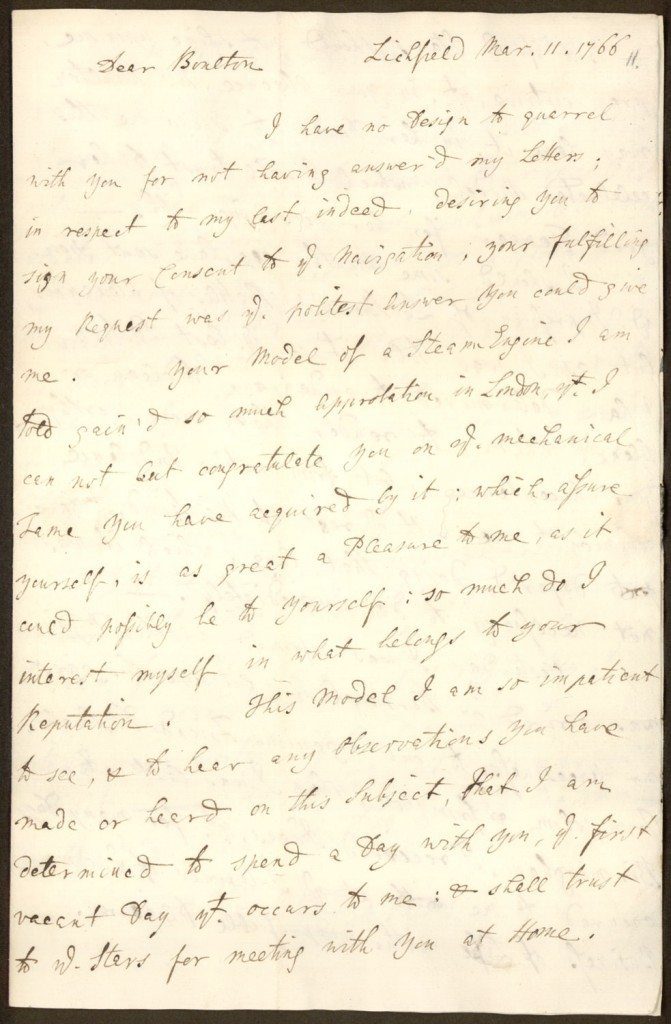 Lichfield Mar. 11. 1766 11.
Dear Boulton
I have no Design to quarrel
with you for not having answer'd my Letters;
in respect to my last indeed, desiring you to
sign your Consent to ye. Navigation, your fulfilling
my Request was ye. politest answer you could give
me. Your Model of a Steam Engine I am
told gain'd so much approbation in London, yt. I
can not but congratulate you on ye. mechanical
Fame you have acquired by it: which, assure
yourself, is as great a Pleasure to me, as it
could possibly be to yourself: so much do I
interest myself in what belongs to your
Reputation. This Model I am so impatient
to see, & to hear any observations you have
made or heerd on this Subject, that I am
determined to spend a Day with you, ye. first
vacant Day yt. occurs to me: & shall trust
to ye. Stars for meeting with you at Home.